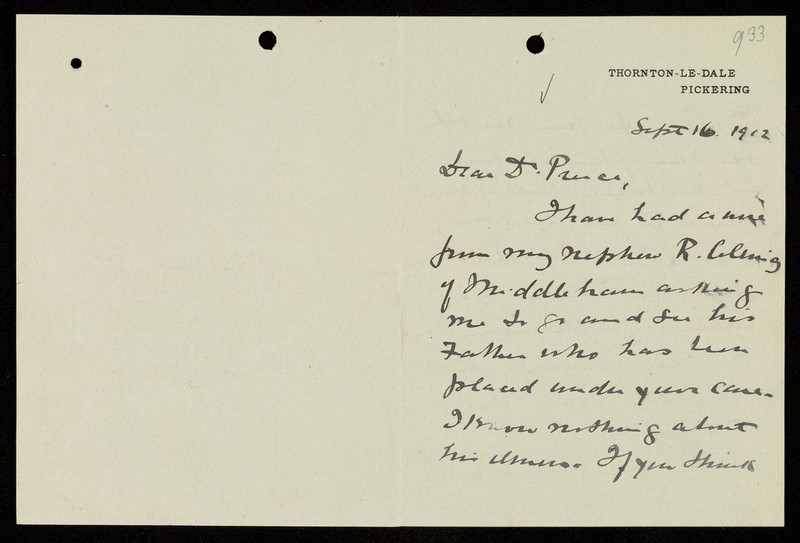 933
THORNTON-LE-DALE
PICKERING
Sept 16. 1912
Dear Dr. Pierce,
I have had a wire
from my nephew R.
of Middleham asking
me to go and see his
Father who has been
placed under your care.
I know nothing about
his illness. If you think